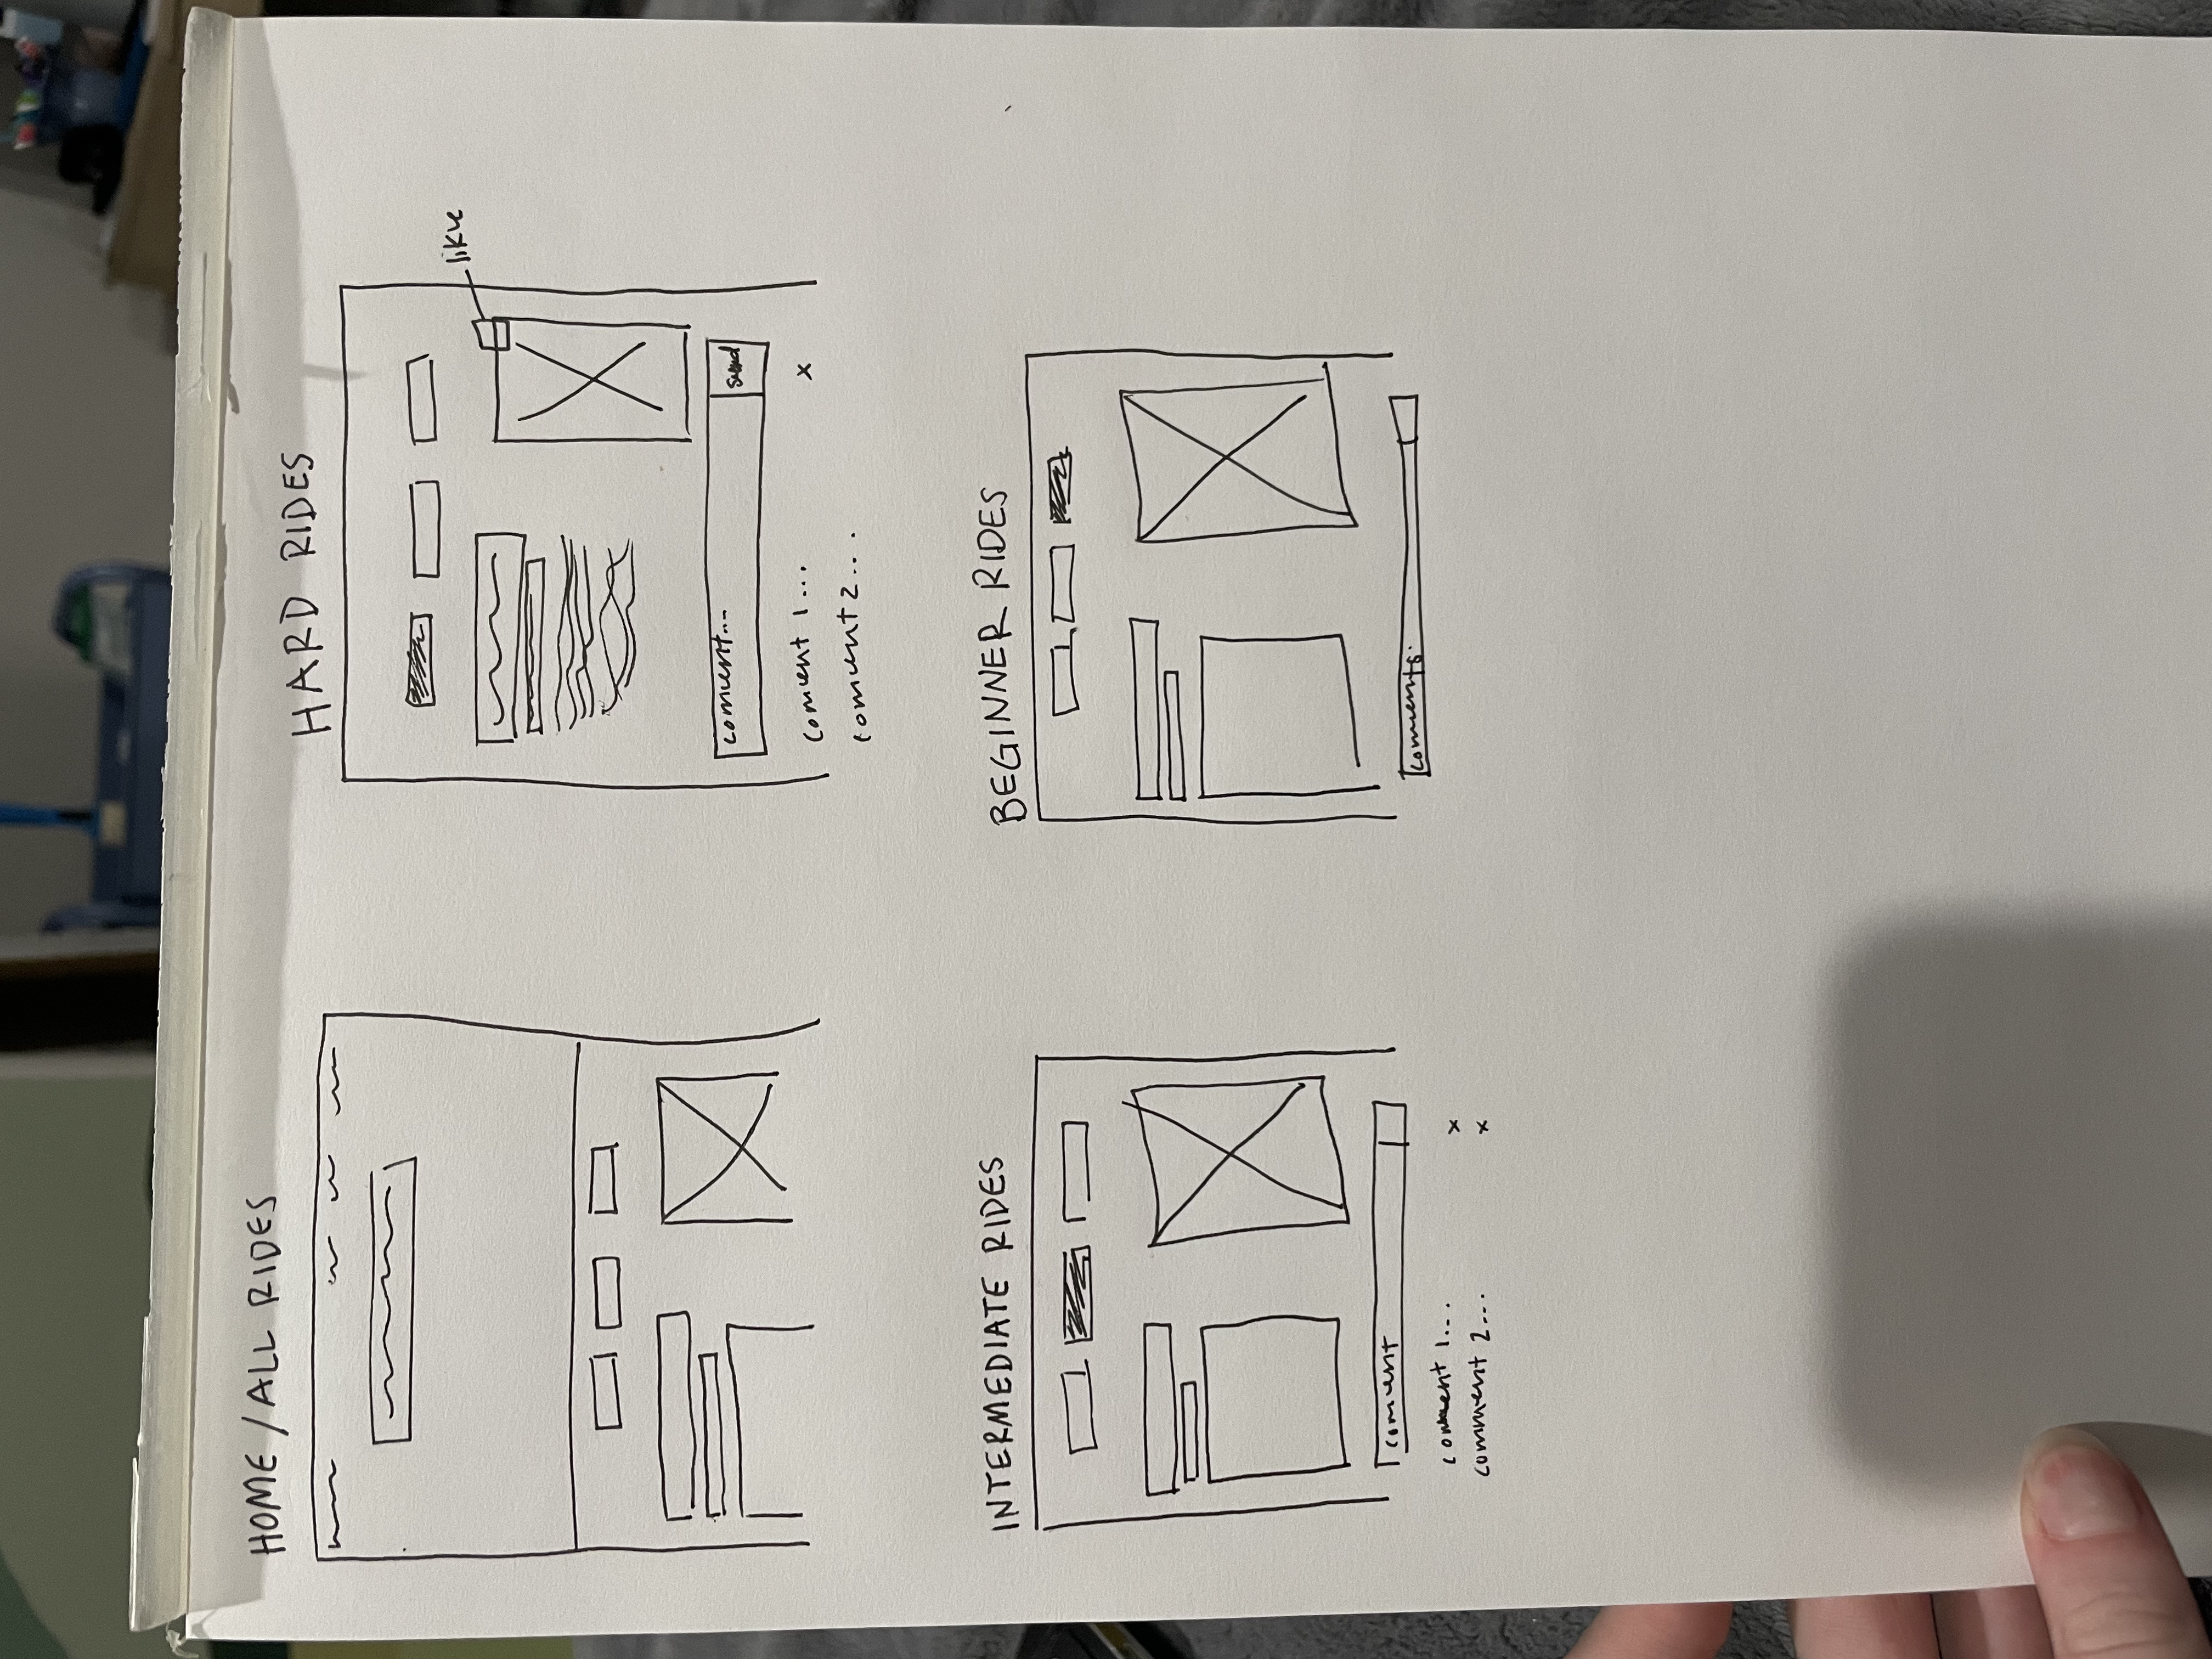 HOME / ALL RIDES
HARD RIDES
like
comment...
send
comment 1... x
comment 2...
INTERMEDIATE RIDES
comment
comment 1... x
comment 2... x
BEGINNER RIDES
comments.